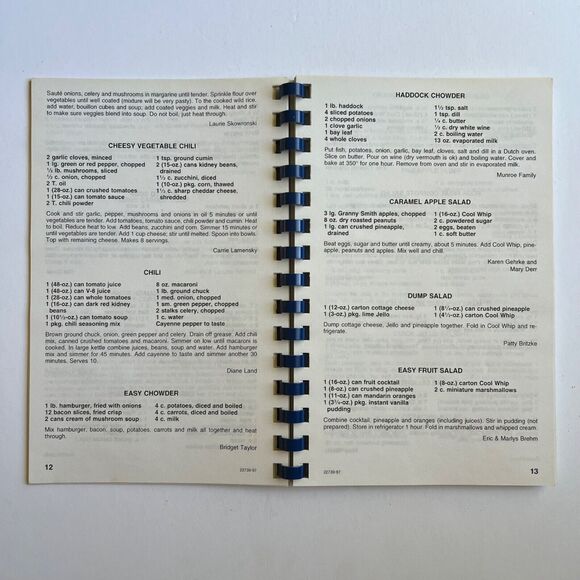 Sauté onions, celery and mushrooms in margarine until tender. Sprinkle flour over
vegetables until well coated (mixture will be very pasty). To the cooked wild rice,
add water, bouillon cubes and soup; add coated veggies and milk. Heat and stir
to make sure veggies blend into soup. Do not boil, just heat through.
Laurie Skowronski
CHEESY VEGETABLE CHILI
2 garlic cloves, minced
1 lg. green or red pepper, chopped
½ lb. mushrooms, sliced
½ c. onion, chopped
2 T. oil
1 (28-oz.) can crushed tomatoes
1 (15-oz.) can tomato sauce
2 T. chili powder
1 tsp. ground cumin
2 (15-oz.) cans kidney beans,
drained
1 c. zucchini, diced
1 (10-oz.) pkg. corn, thawed
1½ c. sharp cheddar cheese,
shredded
Cook and stir garlic, pepper, mushrooms and onions in oil 5 minutes or until
vegetables are tender. Add tomatoes, tomato sauce, chili powder and cumin. Heat
to boil. Reduce heat to low. Add beans, zucchini and corn. Simmer 15 minutes or
until vegetables are tender. Add 1 cup cheese; stir until melted. Spoon into bowls.
Top with remaining cheese. Makes 8 servings.
Carrie Lamensky
CHILI
1 (48-oz.) can tomato juice
1 (48-oz.) can V-8 juice
1 (28-oz.) can whole tomatoes
1 (16-oz.) can dark red kidney
beans
1 (10½-oz.) can tomato soup
1 pkg. chili seasoning mix
8 oz. macaroni
1 lb. ground chuck
1 med. onion, chopped
1 sm. green pepper, chopped
2 stalks celery, chopped
1 c. water
Cayenne pepper to taste
Brown ground chuck, onion, green pepper and celery. Drain off grease. Add chili
mix, canned crushed tomatoes and macaroni. Simmer on low until macaroni is
cooked. In large kettle combine juices, beans, soup and water. Add hamburger
mix and simmer for 45 minutes. Add cayenne to taste and simmer another 30
minutes. Serves 10.
Diane Land
EASY CHOWDER
1 lb. hamburger, fried with onions
12 bacon slices, fried crisp
2 cans cream of mushroom soup
4 c. potatoes, diced and boiled
4 c. carrots, diced and boiled
4 c. milk
Mix hamburger, bacon, soup, potatoes, carrots and milk all together and heat
through.
Bridget Taylor
12
22739-97
HADDOCK CHOWDER
1 lb. haddock
4 sliced potatoes
2 chopped onions
1 clove garlic
1 bay leaf
4 whole cloves
1½ tsp. salt
1 tsp. dill
¼ c. butter
½ c. dry white wine
2 c. boiling water
13 oz. evaporated milk
Put fish, potatoes, onion, garlic, bay leaf, cloves, salt and dill in a Dutch oven.
Slice on butter. Pour on wine (dry vermouth is ok) and boiling water. Cover and
bake at 350° for one hour. Remove from oven and stir in evaporated milk.
Munroe Family
CARAMEL APPLE SALAD
3 lg. Granny Smith apples, chopped
8 oz. dry roasted peanuts
1 lg. can crushed pineapple,
drained
1 (16-oz.) Cool Whip
2 c. powdered sugar
2 eggs, beaten
1 c. soft butter
Beat eggs, sugar and butter until creamy, about 5 minutes. Add Cool Whip, pine-
apple, peanuts and apples. Mix well and chill.
Karen Gehrke and
Mary Derr
DUMP SALAD
1 (12-oz.) carton cottage cheese
1 (3-oz.) pkg. lime Jello
1 (8¼-oz.) can crushed pineapple
1 (4½-oz.) carton Cool Whip
Dump cottage cheese, Jello and pineapple together. Fold in Cool Whip and re-
frigerate.
Patty Britzke
EASY FRUIT SALAD
1 (16-oz.) can fruit cocktail
1 (8-oz.) can crushed pineapple
1 (11-oz.) can mandarin oranges
1 (3¼-oz.) pkg. instant vanilla
pudding
1 (8-oz.) carton Cool Whip
2 c. miniature marshmallows
Combine cocktail, pineapple and oranges (including juices). Stir in pudding (not
prepared). Store in refrigerator 1 hour. Fold in marshmallows and whipped cream.
Eric & Marlys Brehm
22739-97
13